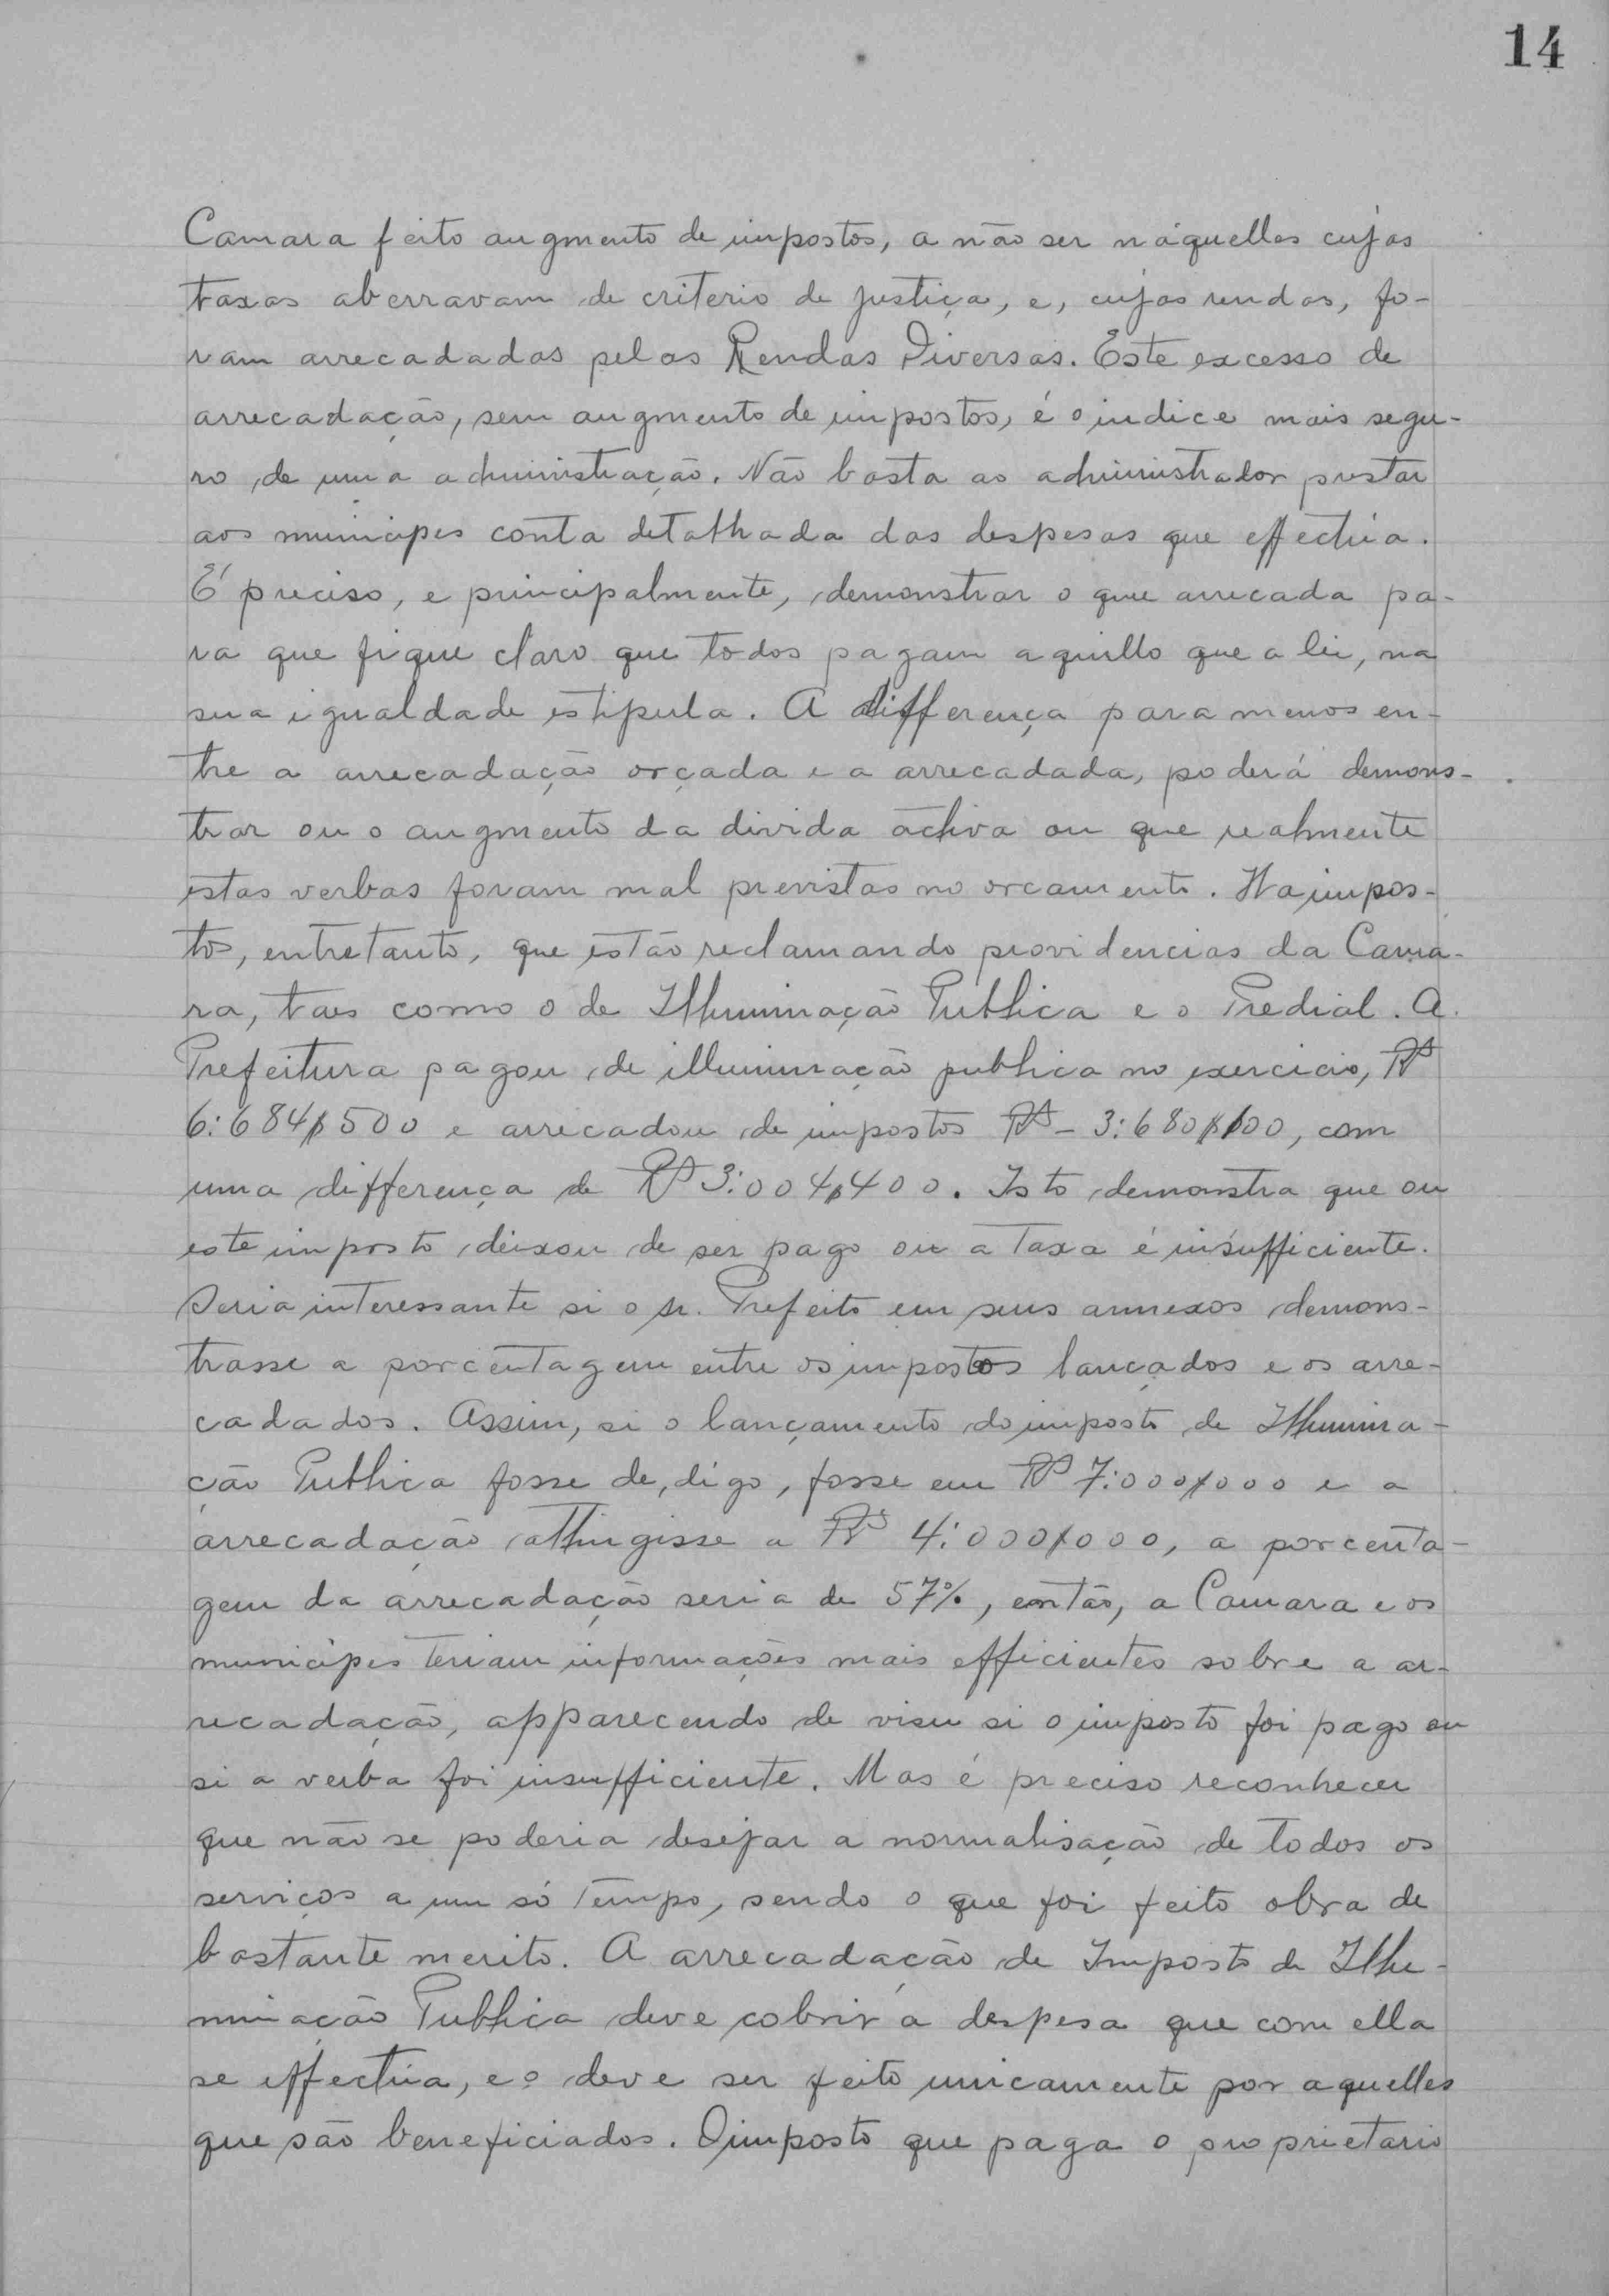 14
Camara feito augmento de impostos, a não ser náquelles cujas
taxas aberravam de criterio de justiça, e, cujas rendas, fo-
ram arrecadadas pelas Rendas Diversas. Este excesso de
arrecadação, sem augmento de impostos, é o indice mais segu-
ro de uma administração. Não basta ao administrador prestar
aos municipes conta detalhada das despesas que effectúa.
É preciso, e principalmente, demonstrar o que arrecada pa-
ra que fique claro que todos pagam aquillo que a lei, na
sua igualdade estipula. A differença para menos en-
tre a arrecadação orçada e a arrecadada, poderá demons-
trar ou o augmento da divida activa ou que realmente
estas verbas foram mal previstas no orcamento. Ha impos-
tos, entretanto, que estão reclamando providencias da Cama-
ra, taes como o de Illuminação Publica e o Predial. A
Prefeitura pagou de illuminação publica no exercicio, Rs
6:684$500 e arrecadou de impostos Rs - 3:680$100, com
uma differença de Rs 3:004$400. Isto demonstra que ou
este imposto deixou de ser pago ou a taxa é insufficiente.
Seria interessante si o sr. Prefeito em seus annexos demons-
trasse a porcentagem entre os impostos lançados e os arre-
cadados. Assim, si o lançamento do imposto de Illumina-
ção Publica fosse de, digo, fosse em Rs 7:000$000 e a
arrecadação attingisse a Rs 4:000$000, a porcenta-
gem da arrecadação seria de 57%, então, a Camara e os
municipes teriam informações mais efficientes sobre a ar-
recadação, apparecendo de visu si o imposto foi pago ou
si a verba foi insufficiente. Mas é preciso reconhecer
que não se poderia desejar a normalisação de todos os
serviços a um só tempo, sendo o que foi feito obra de
bastante merito. A arrecadação de Imposto de Illu-
minação Publica deve cobrir a despesa que com ella
se effectúa, e o deve ser feito unicamente por aquelles
que são beneficiados. O imposto que paga o proprietario